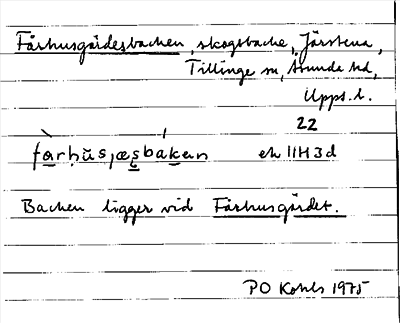 Fårhusgärdesbacken, skogsbacke, Järstena,
Tillinge sn, Åsunda hd,
Upps. l.
22
ek 11H3d
Backen ligger vid Fårhusgärdet.
PO Kohls 1975